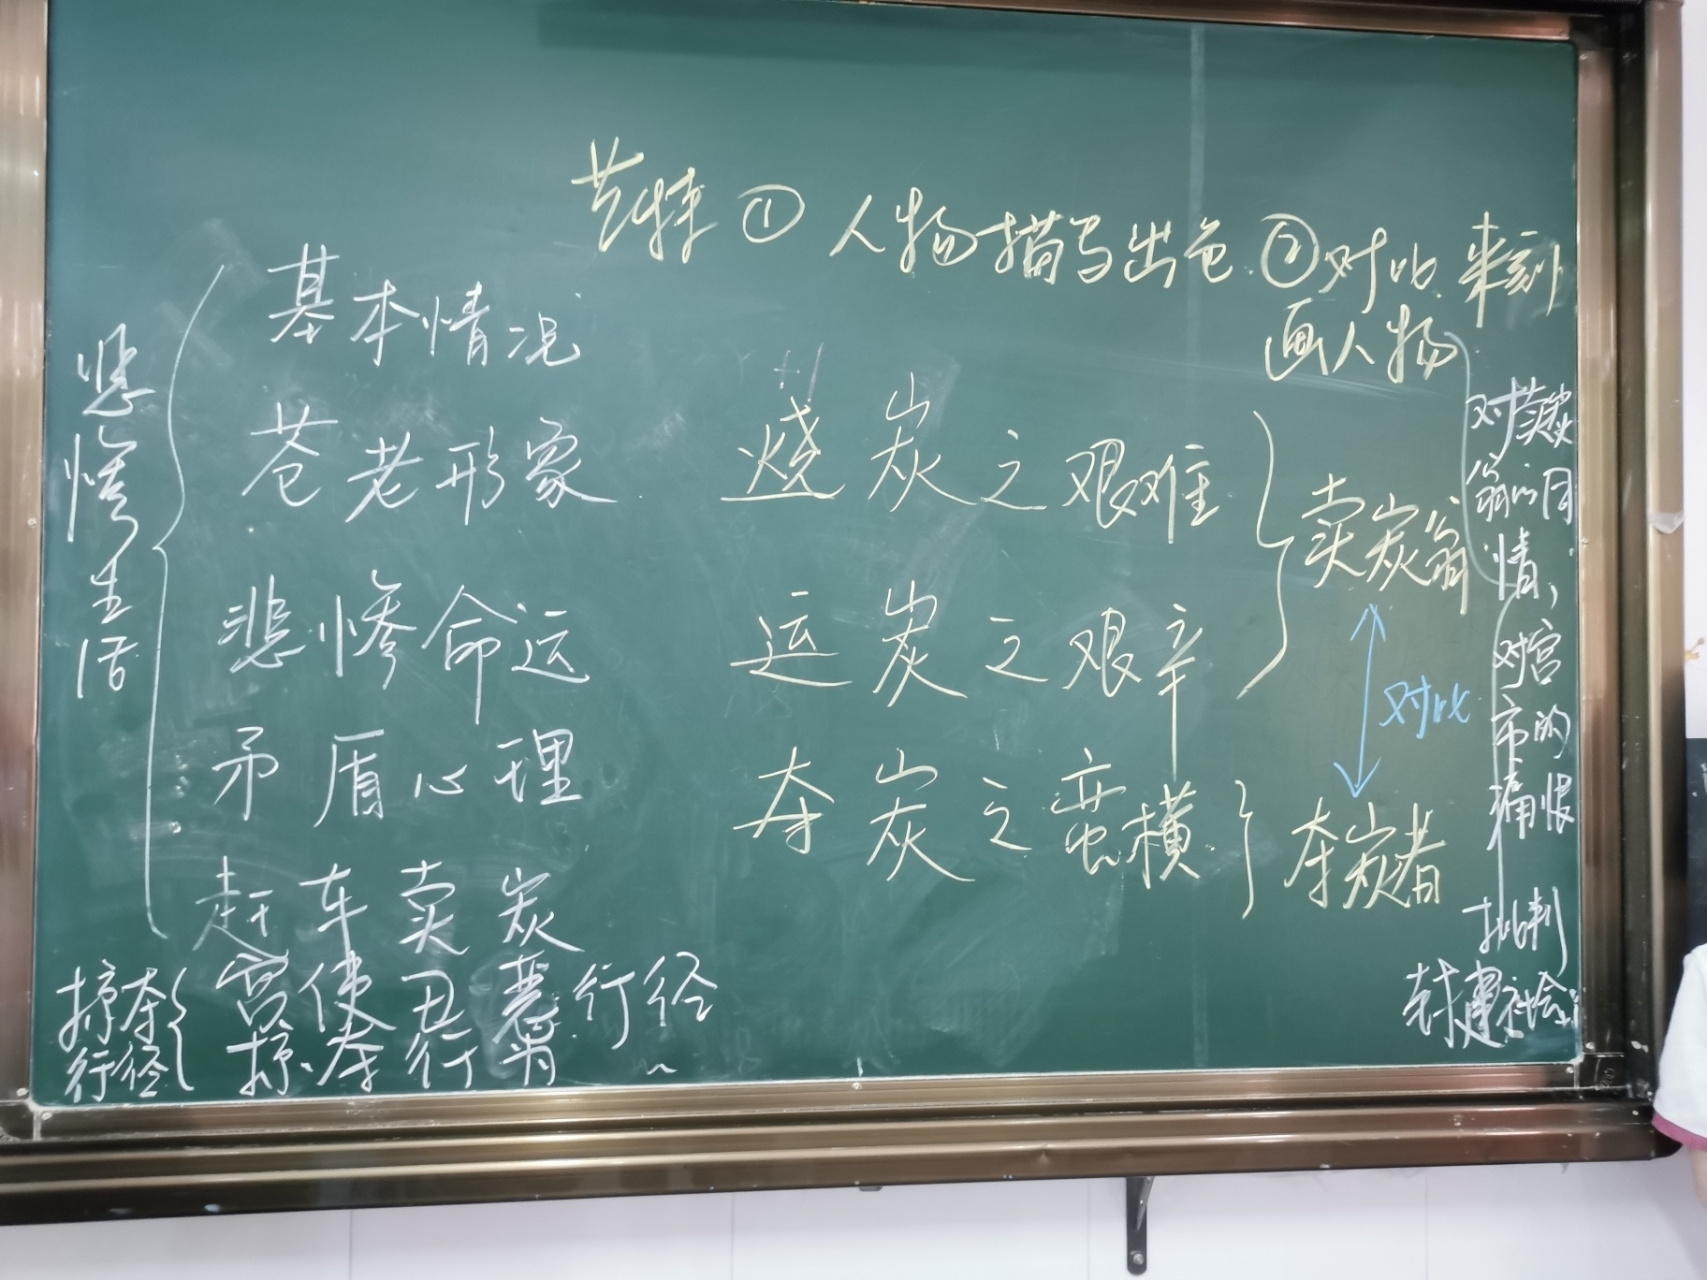 艺特 ① 人物描写出色 ② 对比 来刻
画人物
悲惨生活
基本情况
苍老形象
悲惨命运
矛盾心理
赶车卖炭
掠夺
行径
宫使丑恶行径
掠夺行为
烧炭之艰难
运炭之艰辛
夺炭之蛮横
卖炭翁
对比
夺炭者
对卖炭
翁的同
情，
对宫
市的
痛恨
批判
封建社会